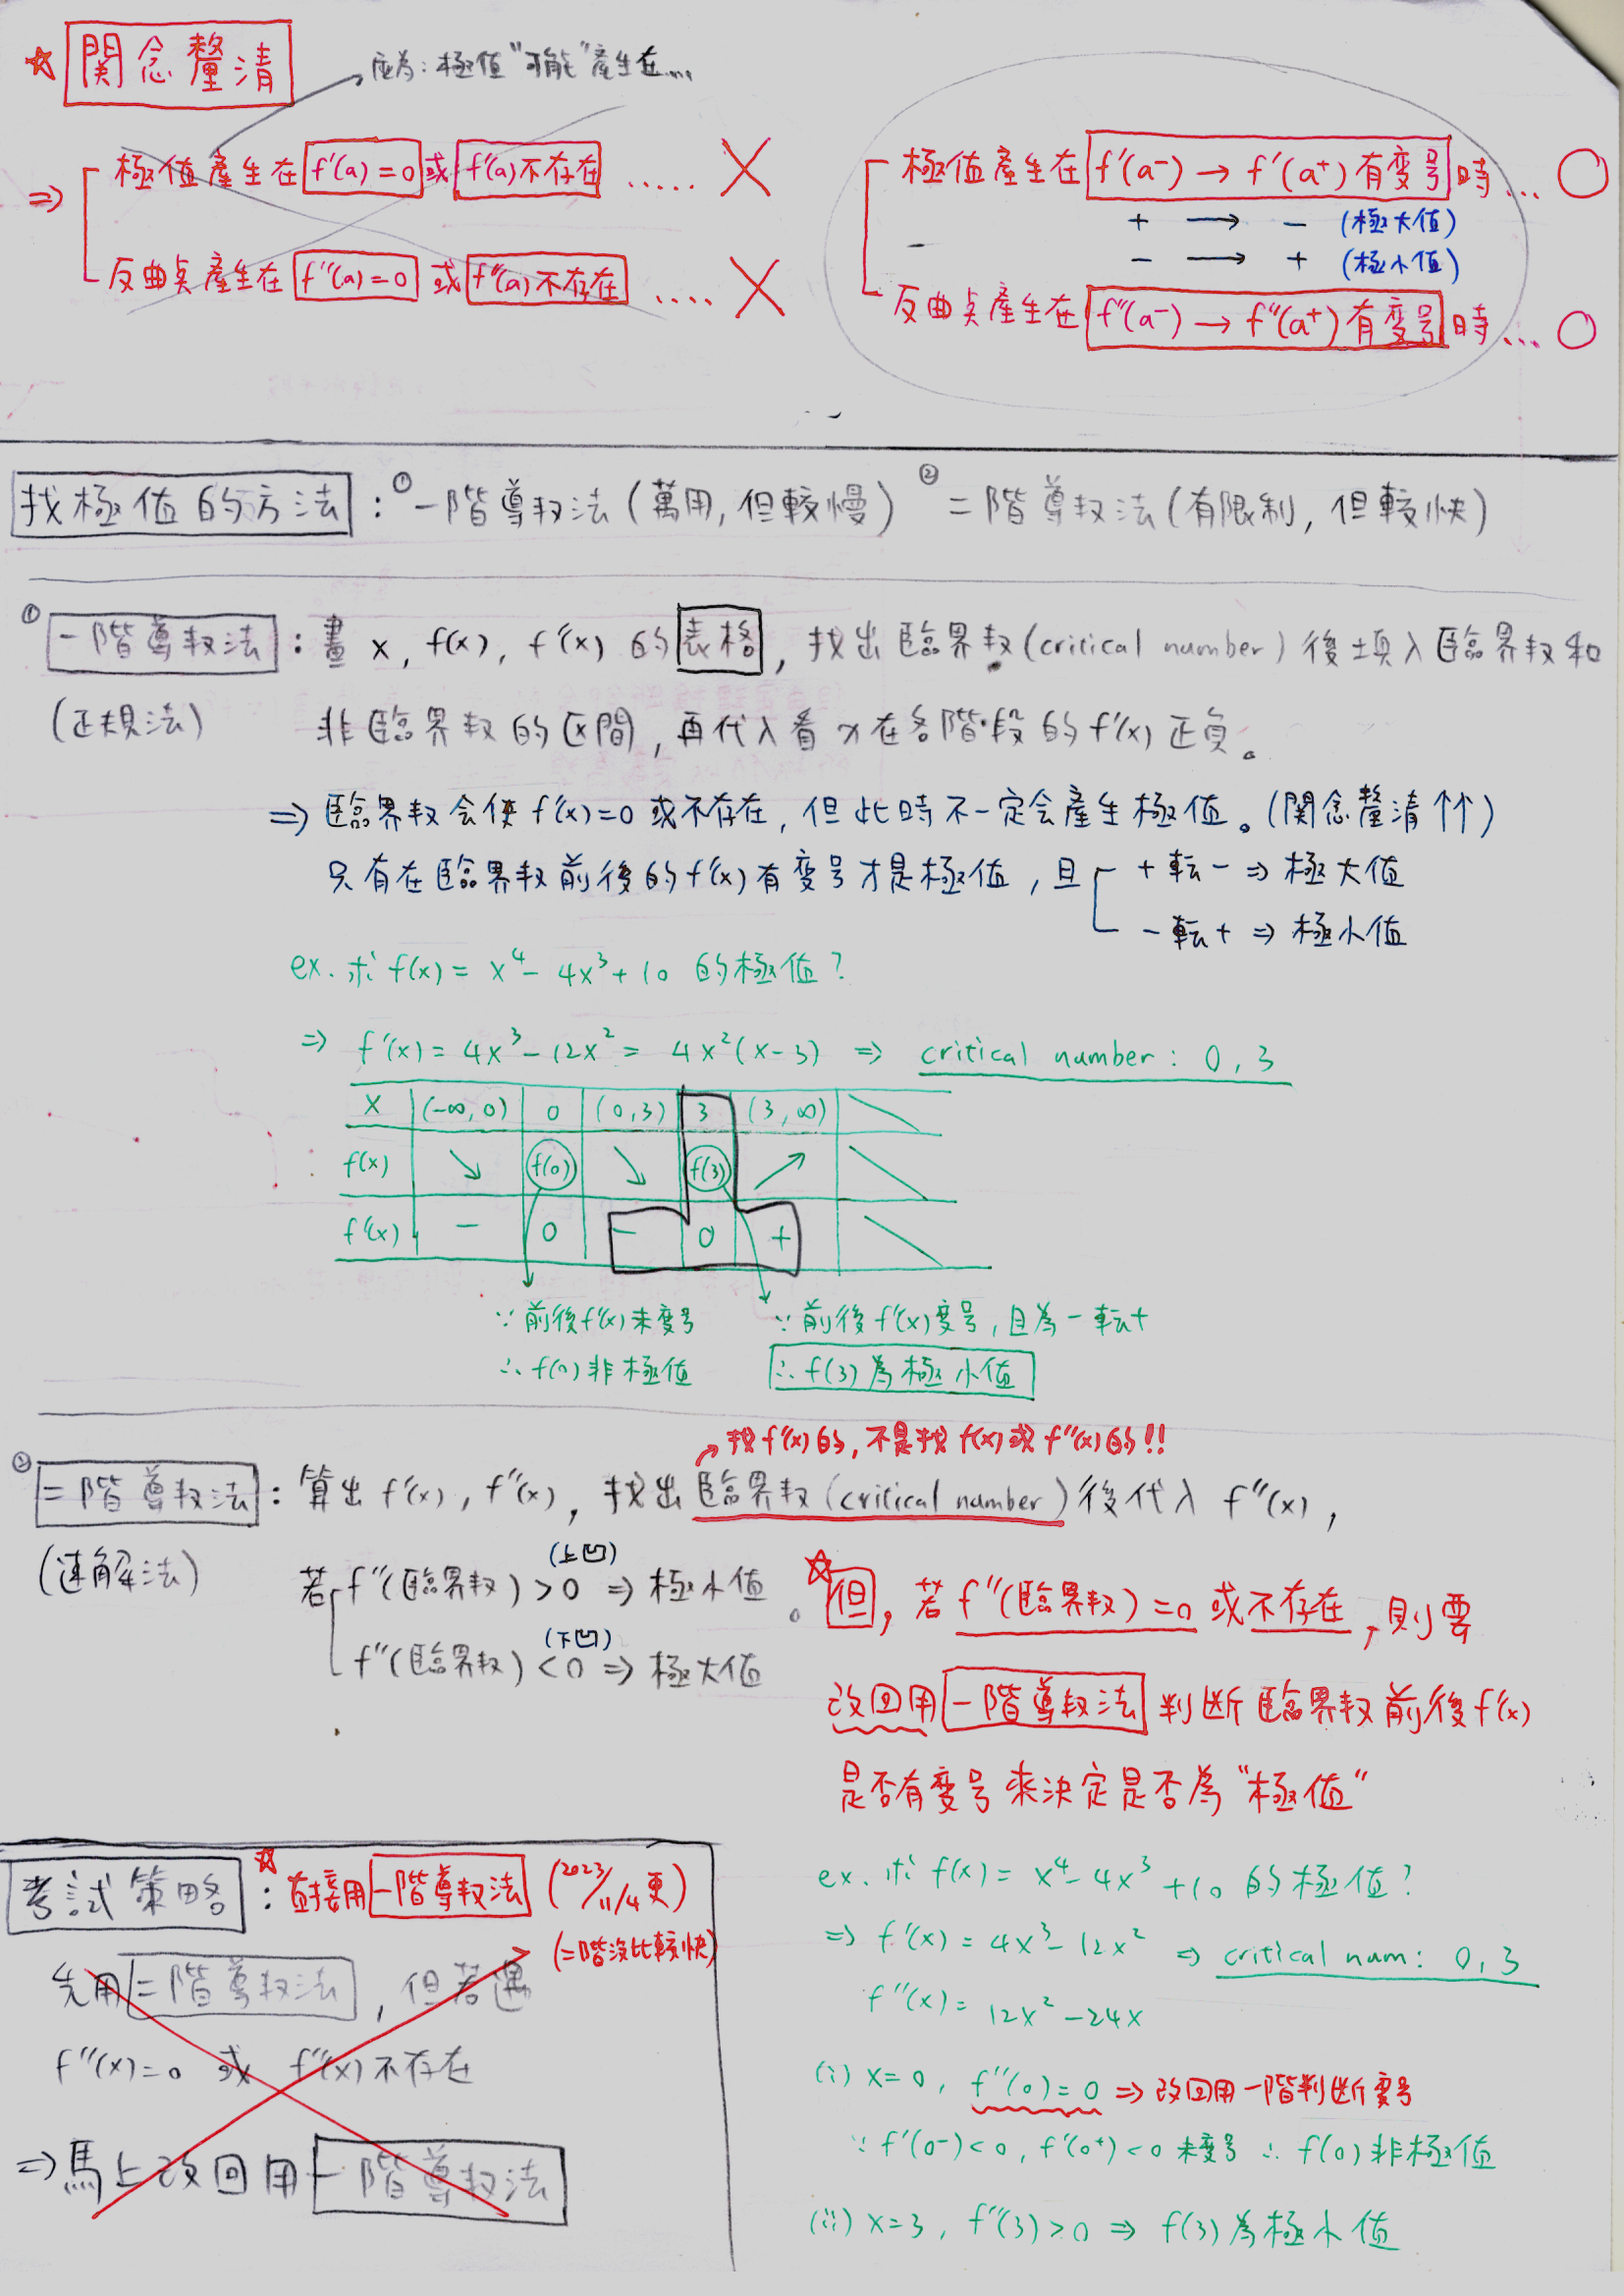 ☆ 関念釐清
應為：極值"可能"產生在...
⇒ 極值產生在 f'(a)=0 或 f'(a)不存在 ..... ✕
反曲点產生在 f''(a)=0 或 f''(a)不存在 .... ✕
極值產生在 f'(a⁻) → f'(a⁺) 有变号 時... ○
+ → - (極大值)
- → + (極小值)
反曲点產生在 f''(a⁻) → f''(a⁺) 有变号 時... ○
找極值的方法：① 一階導数法(萬用,但較慢) ② 二階導数法(有限制,但較快)
① 一階導数法：畫 x, f(x), f'(x) 的 表格, 找出臨界数(critical number)後填入臨界数和
(正規法) 非臨界数的区間, 再代入看 x 在各階段的 f'(x) 正負。
⇒ 臨界数会使 f'(x)=0 或不存在, 但此時不一定会產生極值。(関念釐清↑↑)
只有在臨界数前後的 f'(x) 有変号才是極值, 且 +転- ⇒ 極大值
-転+ ⇒ 極小值
ex. 求 f(x) = x⁴ - 4x³ + 10 的極值?
⇒ f'(x) = 4x³ - 12x² = 4x²(x-3) ⇒ critical number: 0, 3
x (-∞, 0) 0 (0, 3) 3 (3, ∞)
f(x) ↘ f(0) ↘ f(3) ↗
f'(x) - 0 - 0 +
∵ 前後 f'(x) 未変号
∴ f(0) 非極值
∵ 前後 f'(x) 変号, 且為 - 転 +
∴ f(3) 為極小值
找 f'(x) 的, 不是找 f(x) 或 f''(x) 的!!
② 二階導数法：算出 f'(x), f''(x), 找出臨界数(critical number)後代入 f''(x),
(速解法) 若 f''(臨界数) > 0 (上凹) ⇒ 極小值
f''(臨界数) < 0 (下凹) ⇒ 極大值 。
☆ 但, 若 f''(臨界数)=0 或不存在, 則要
改回用 一階導数法 判断臨界数前後 f'(x)
是否有変号來決定是否為"極值"
ex. 求 f(x) = x⁴ - 4x³ + 10 的極值?
⇒ f'(x) = 4x³ - 12x² ⇒ critical num: 0, 3
f''(x) = 12x² - 24x
(i) x=0, f''(0)=0 ⇒ 改回用一階判断変号
∵ f'(0⁻)<0, f'(0⁺)<0 未変号 ∴ f(0) 非極值
(ii) x=3, f''(3)>0 ⇒ f(3) 為極小值
考試策略：☆ 直接用 一階導数法 (2023/11/4更)
(二階沒比較快)
先用 二階導数法, 但若遇
f''(x)=0 或 f''(x)不存在
⇒ 馬上改回用 一階導数法